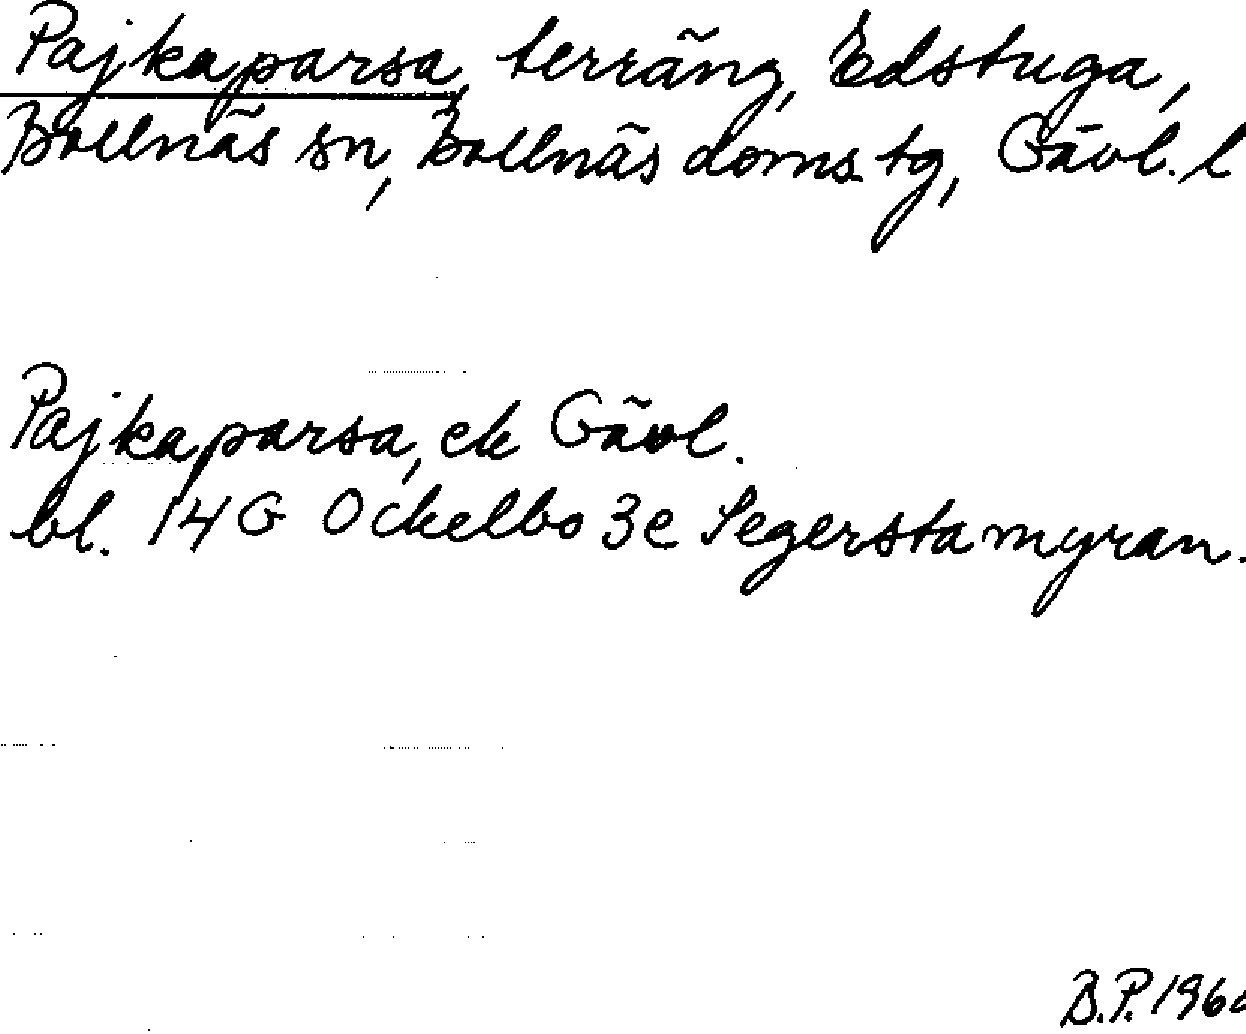 Pajkaparsa, terräng, Edstuga,
Bollnäs sn, Bollnäs doms.tg, Gävl. l
Pajkaparsa, ek Gävl.
bl. 14G Ockelbo 3e Segerstamyran.
B.P. 196